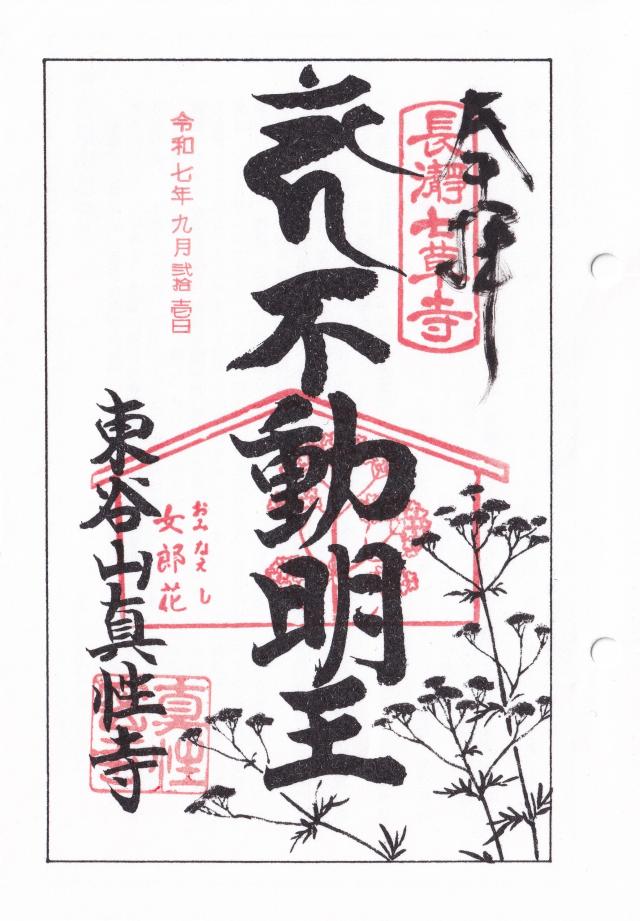 奉拝
長瀞七草寺
不動明王
おみなえし
女郎花
令和七年九月弐拾壱日
東谷山真性寺